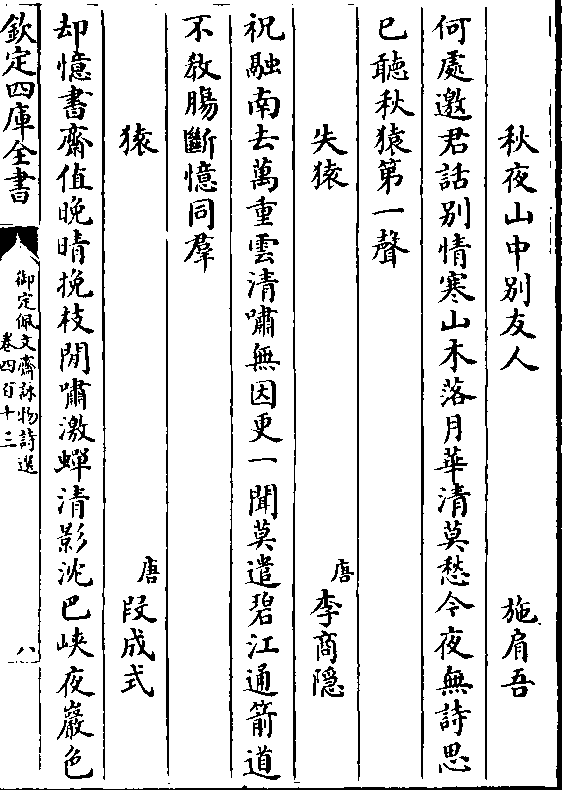 秋夜山中別友人　施肩吾
何處邀君話別情寒山木落月華清莫愁今夜無詩思
已聽秋猿第一聲
失猿　唐李商隱
祝融南去萬重雲清嘯無因更一聞莫遣碧江通箭道
不教腸斷憶同羣
猿　唐段成式
却憶書齋值晚晴挽枝閒嘯激蟬清影沈巴峽夜巖色
欽定四庫全書
御定佩文齋詠物詩選
卷四百十三
八